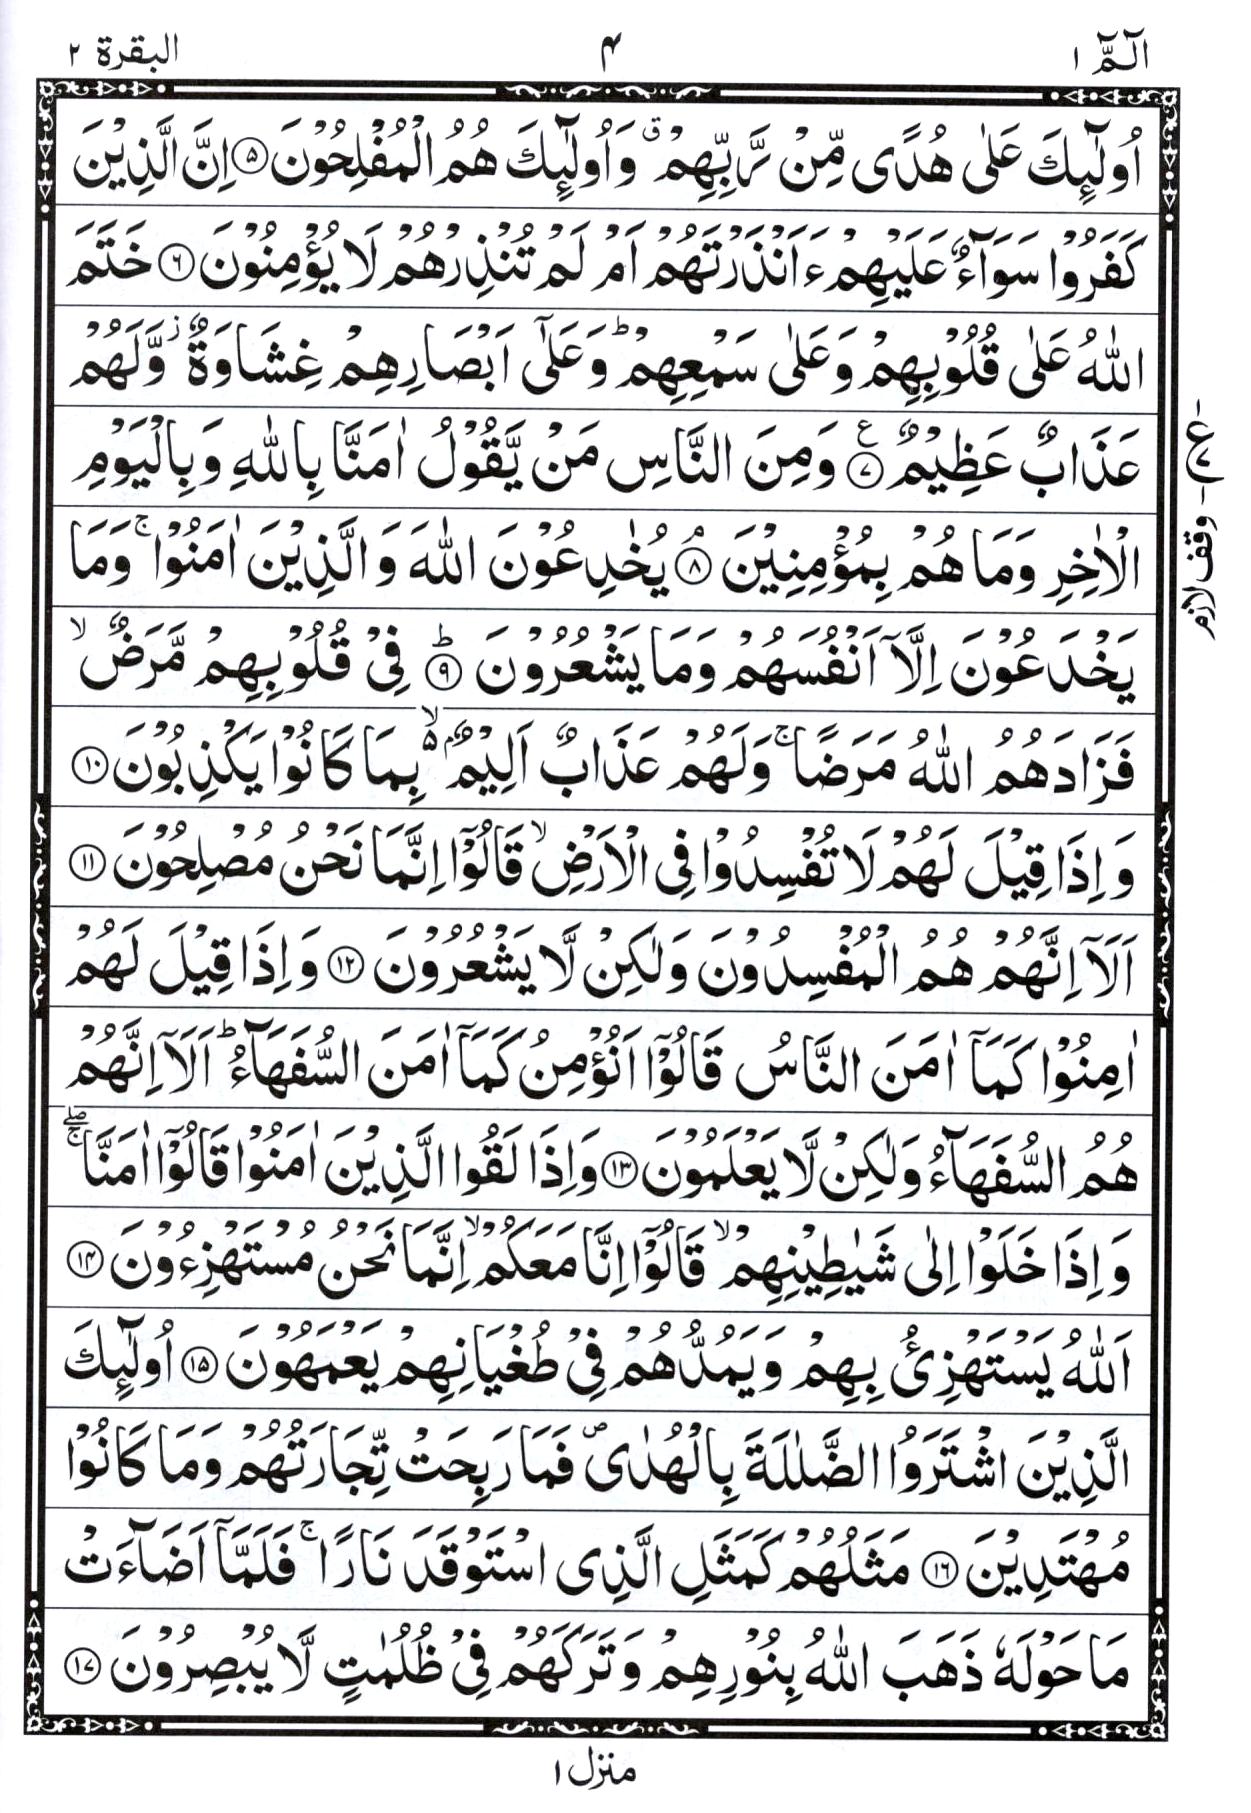 الٓمّٓ ۱
۴
البقرة ۲
اُولٰٓئِكَ عَلٰى هُدًى مِّنْ رَّبِّهِمْ ۗ وَاُولٰٓئِكَ هُمُ الْمُفْلِحُوْنَ ۵ اِنَّ الَّذِيْنَ
كَفَرُوْا سَوَآءٌ عَلَيْهِمْ ءَاَنْذَرْتَهُمْ اَمْ لَمْ تُنْذِرْهُمْ لَا يُؤْمِنُوْنَ ۶ خَتَمَ
اللّٰهُ عَلٰى قُلُوْبِهِمْ وَعَلٰى سَمْعِهِمْ ؕ وَعَلٰٓى اَبْصَارِهِمْ غِشَاوَةٌ ز وَّلَهُمْ
عَذَابٌ عَظِيْمٌ ۷ ع وَمِنَ النَّاسِ مَنْ يَّقُوْلُ اٰمَنَّا بِاللّٰهِ وَبِالْيَوْمِ
الْاٰخِرِ وَمَا هُمْ بِمُؤْمِنِيْنَ ۘ ۸ يُخٰدِعُوْنَ اللّٰهَ وَالَّذِيْنَ اٰمَنُوْا ۚ وَمَا
يَخْدَعُوْنَ اِلَّآ اَنْفُسَهُمْ وَمَا يَشْعُرُوْنَ ؕ ۹ فِيْ قُلُوْبِهِمْ مَّرَضٌ ۙ
فَزَادَهُمُ اللّٰهُ مَرَضًا ۚ وَلَهُمْ عَذَابٌ اَلِيْمٌۢ ۵ ۙ بِمَا كَانُوْا يَكْذِبُوْنَ ۱۰
وَاِذَا قِيْلَ لَهُمْ لَا تُفْسِدُوْا فِى الْاَرْضِ ۙ قَالُوْٓا اِنَّمَا نَحْنُ مُصْلِحُوْنَ ۱۱
اَلَآ اِنَّهُمْ هُمُ الْمُفْسِدُوْنَ وَلٰكِنْ لَّا يَشْعُرُوْنَ ۱۲ وَاِذَا قِيْلَ لَهُمْ
اٰمِنُوْا كَمَآ اٰمَنَ النَّاسُ قَالُوْٓا اَنُؤْمِنُ كَمَآ اٰمَنَ السُّفَهَآءُ ؕ اَلَآ اِنَّهُمْ
هُمُ السُّفَهَآءُ وَلٰكِنْ لَّا يَعْلَمُوْنَ ۱۳ وَاِذَا لَقُوا الَّذِيْنَ اٰمَنُوْا قَالُوْٓا اٰمَنَّا ۖۚ
وَاِذَا خَلَوْا اِلٰى شَيٰطِيْنِهِمْ ۙ قَالُوْٓا اِنَّا مَعَكُمْ ۙ اِنَّمَا نَحْنُ مُسْتَهْزِءُوْنَ ۱۴
اَللّٰهُ يَسْتَهْزِئُ بِهِمْ وَيَمُدُّهُمْ فِيْ طُغْيَانِهِمْ يَعْمَهُوْنَ ۱۵ اُولٰٓئِكَ
الَّذِيْنَ اشْتَرَوُا الضَّلٰلَةَ بِالْهُدٰى ص فَمَا رَبِحَتْ تِّجَارَتُهُمْ وَمَا كَانُوْا
مُهْتَدِيْنَ ۱۶ مَثَلُهُمْ كَمَثَلِ الَّذِى اسْتَوْقَدَ نَارًا ۚ فَلَمَّآ اَضَآءَتْ
مَا حَوْلَهٗ ذَهَبَ اللّٰهُ بِنُوْرِهِمْ وَتَرَكَهُمْ فِيْ ظُلُمٰتٍ لَّا يُبْصِرُوْنَ ۱۷
وقف لازم
منزل ۱